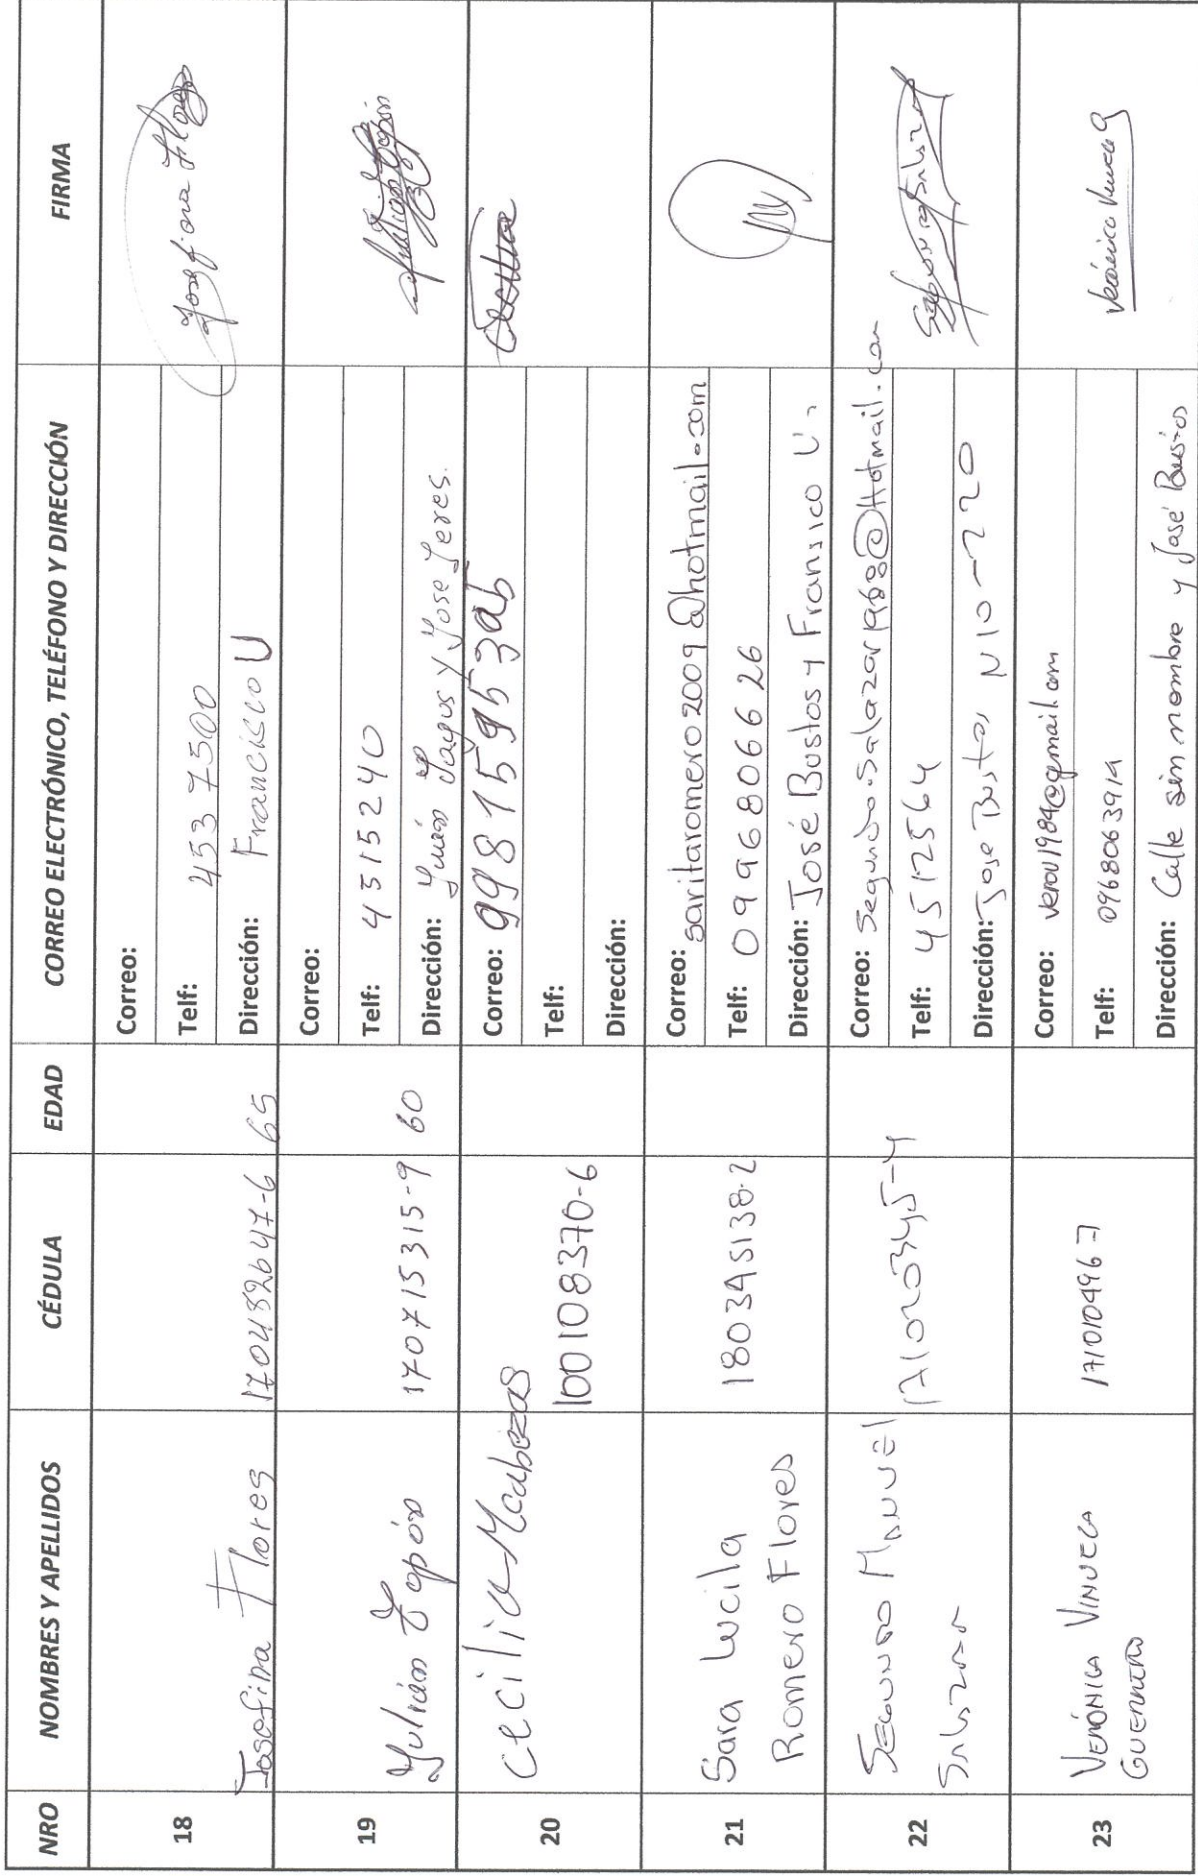 NRO NOMBRES Y APELLIDOS CÉDULA EDAD CORREO ELECTRÓNICO, TELÉFONO Y DIRECCIÓN FIRMA
18
Josefina Flores
65
Correo:
Telf: 453 7500
Dirección: Francisco U
Josefina Flores
19
Julián Tapón
170715315-9
60
Correo:
Telf: 4515240
Dirección: Julián Yagus y Jose Jeres.
20
Cecilia Mcabezas
100108370-6
Correo: 998159153ab
Telf:
Dirección:
21
Sara Lucila
Romero Flores
180345138-2
Correo: saritaromero2009@hotmail.com
Telf: 0996806626
Dirección: José Bustos y Fransico U.
22
SEGUNDO MANUEl
SALAZAR
171020345-4
Correo: Segundo.Salazar1968@Hotmail.com
Telf: 4512564
Dirección: Jose Busto, N10-220
23
VERÓNICA VINUEZA
GUERRERO
171010496-7
Correo: verov1984@gmail.com
Telf: 0968063914
Dirección: Calle sin nombre y José Bustos